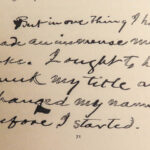 But in one thing I h
ade an immense m
ke. I ought to h
unk my title a
hanged my name
efore I started.